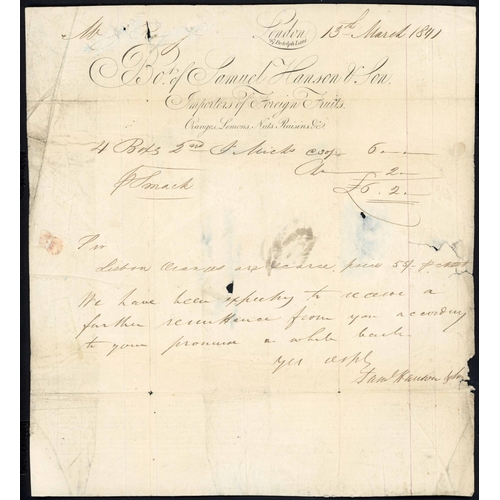 Mr London 13th March 1841
Botolph Lane
Bot. of Samuel Hanson & Son.
Importers of Foreign Fruits.
Oranges, Lemons, Nuts, Raisins &c
4 Boxs 2nd St Micks 6 " "
2 "
£6. 2 "
p Smack
Sir
Lisbon Oranges are scarce, price 54/-
We have been expecting to receive a
further remittance from you according
to your promise a while back
Yrs resply
Saml Hanson & Son